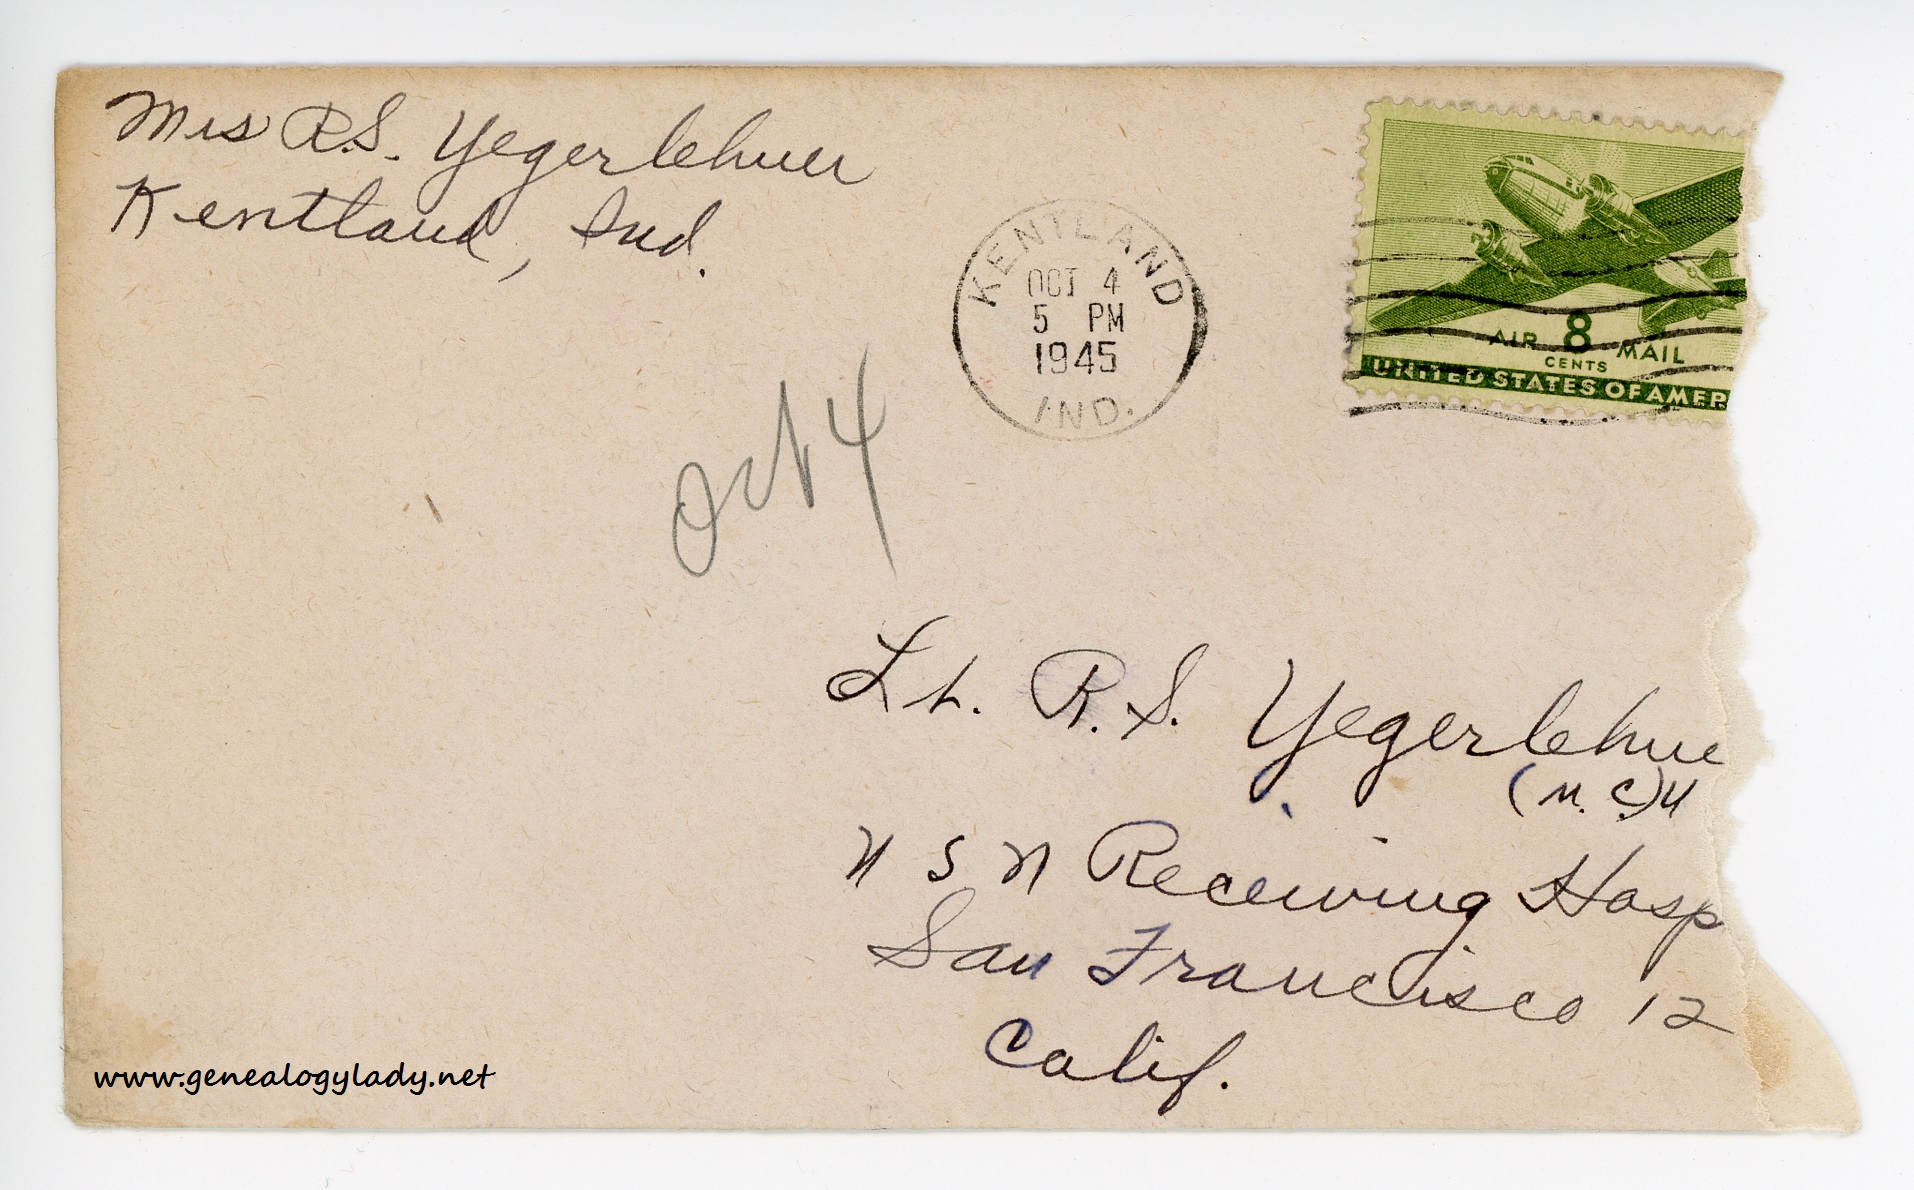 Mrs R.S. Yegerlehner
Kentland, Ind.
KENTLAND
OCT 4
5 PM
1945
IND.
AIR 8 MAIL
CENTS
UNITED STATES OF AMER
Oct 4
Lt. R.S. Yegerlehne
(M.C.) U
U S N Receiving Hosp
San Francisco 12
Calif.
www.genealogylady.net